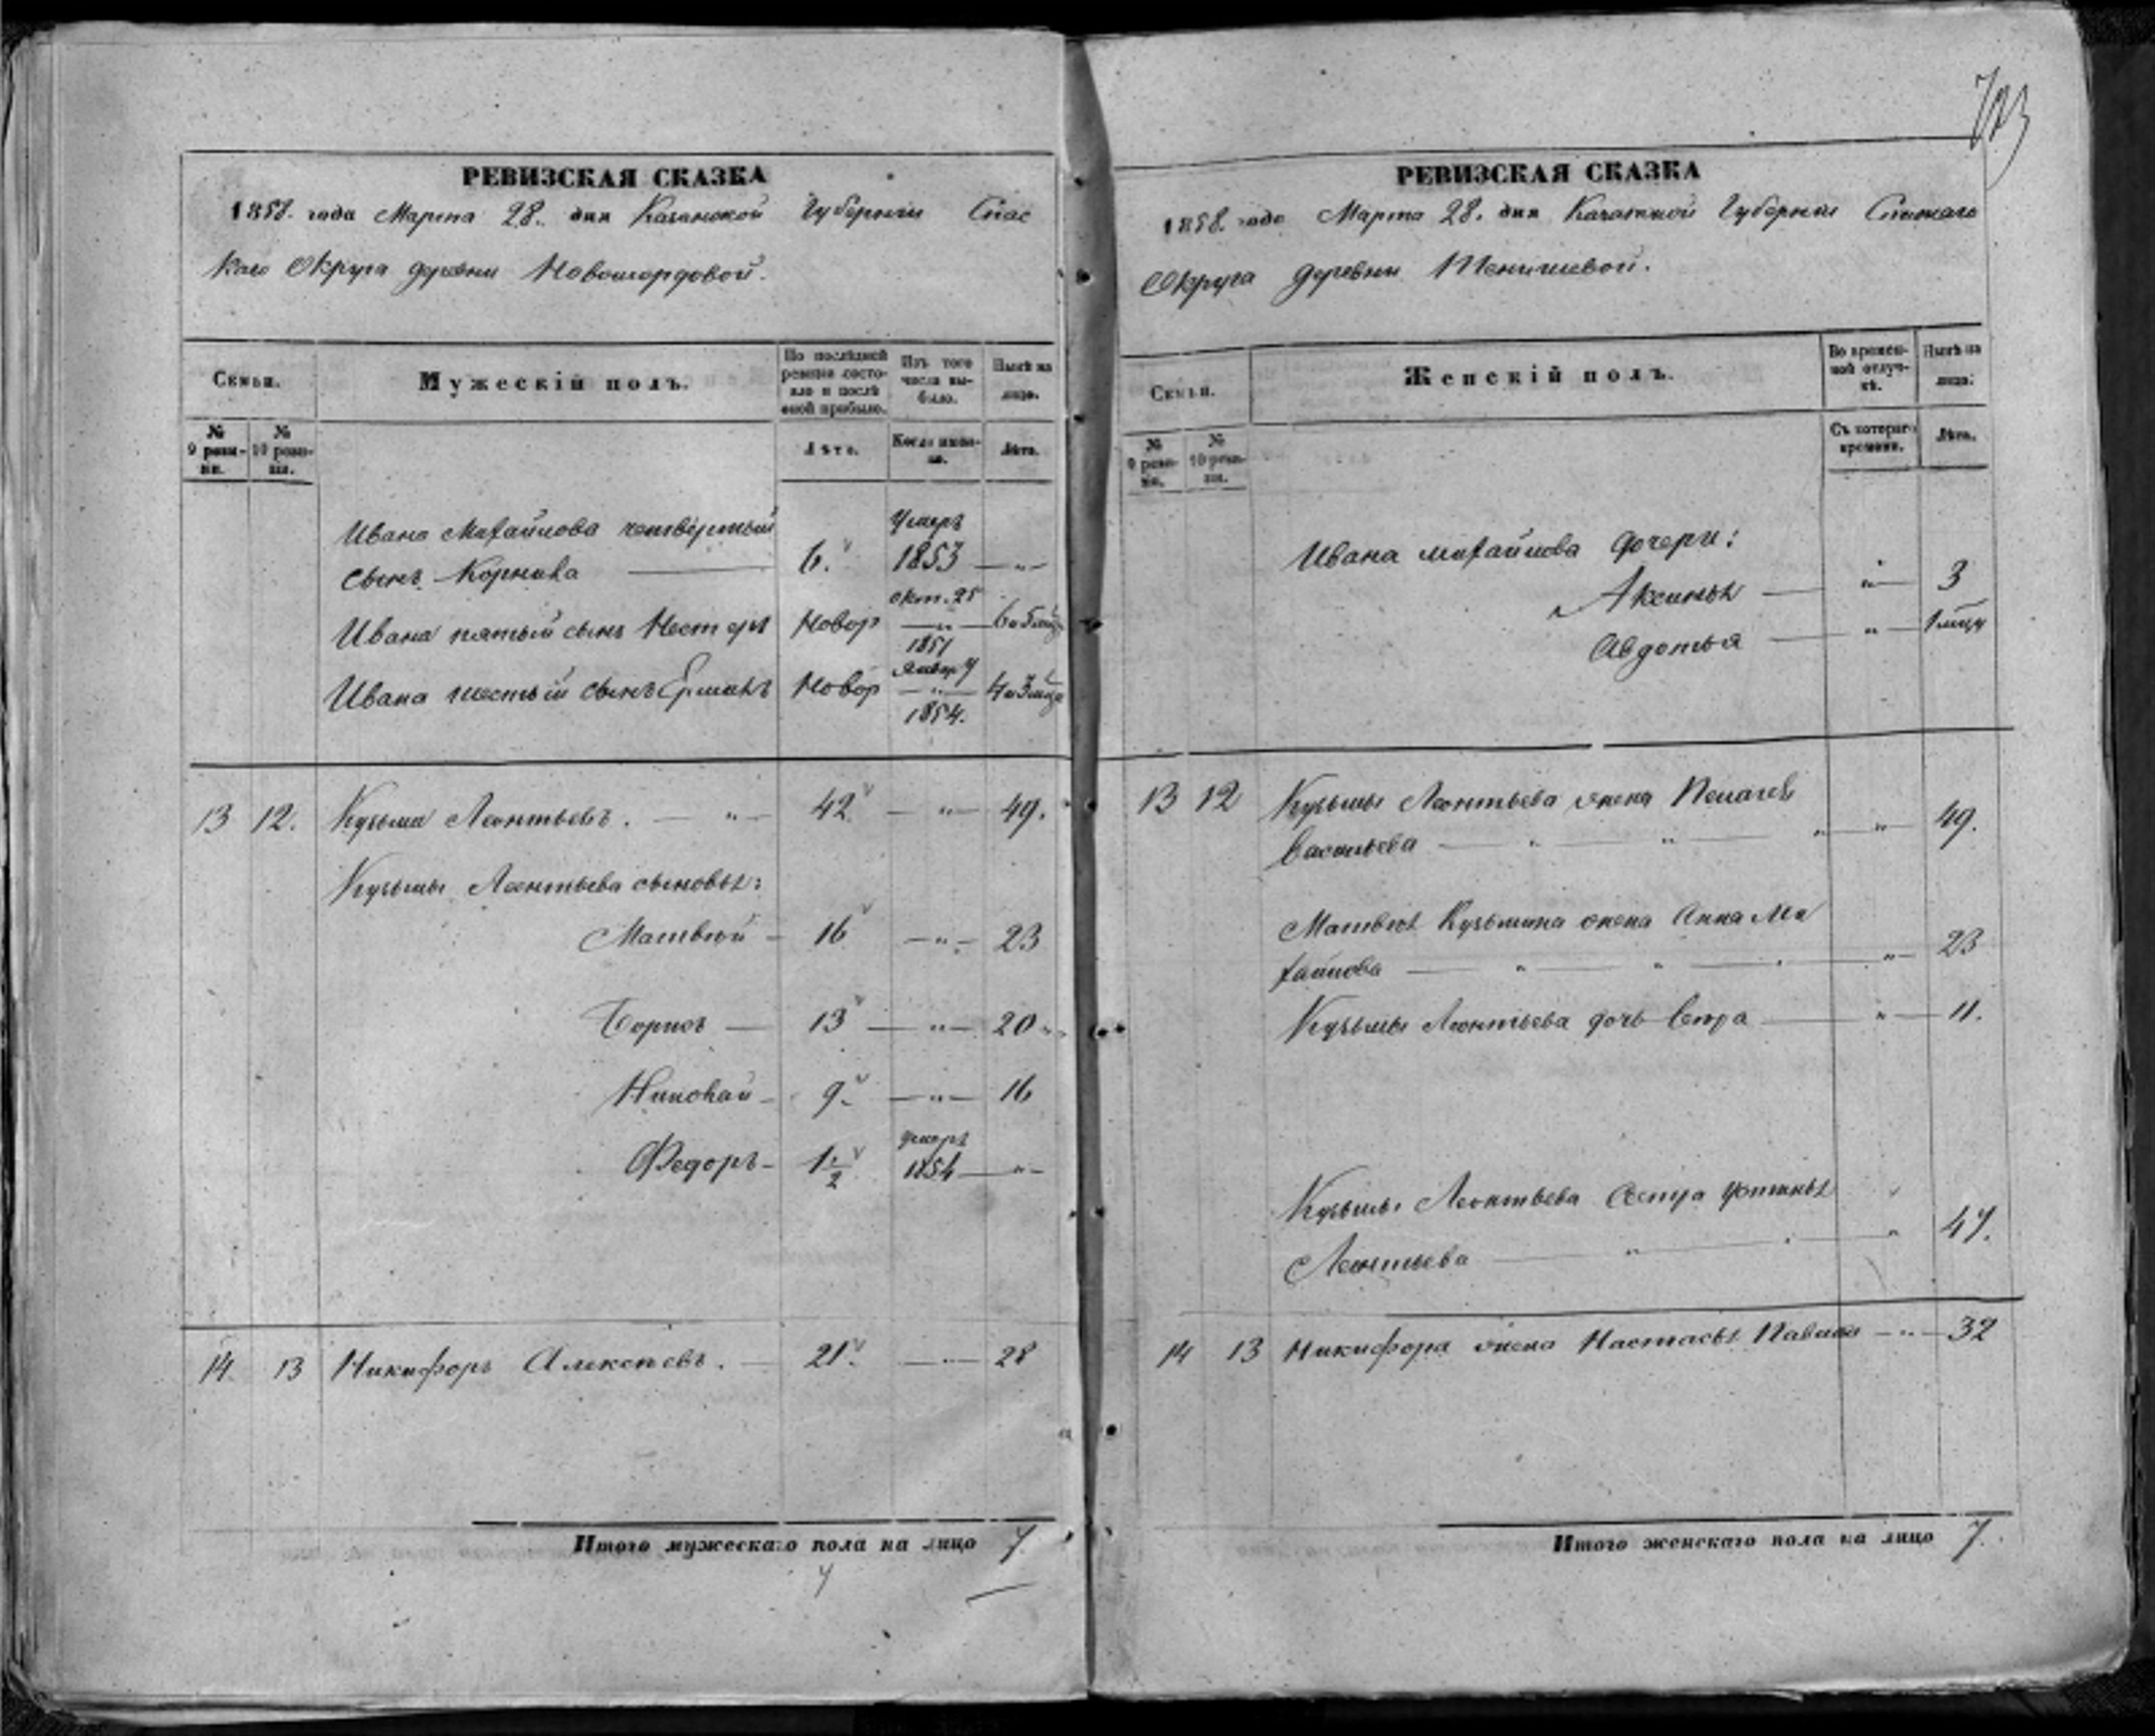 723
РЕВИЗСКАЯ СКАЗКА
1858. года Марта 28. дня Казанской Губернии Спас
каго Округа деревни Новомордовой.
Семьи.
Мужескій полъ.
По послѣдней ревизіи состояло и послѣ оной прибыло.
Изъ того числа выбыло.
Нынѣ на лицо.
№ 9 ревизіи.
№ 10 ревизіи.
Лѣта.
Когда именно.
Лѣта.
Ивана Михайлова четвёртый
сынъ Корнила 6. Умеръ 1853 — " —
Ивана пятый сынъ Нестеръ Новор окт. 25 — " — 1851 6 и 5 мѣц
Ивана шестый сынъ Новор Январ 4 — " — 1854. 4 и 3 мѣца
13 12. Кузьма Леонтьевъ. — " — 42 — " — 49.
Кузьмы Леонтьева сыновья:
Матвѣй — 16 — " — 23
Борисъ — 13 — " — 20
Николай — 9. — " — 16
Федоръ — 1 1/2 умеръ 1854 — " —
14. 13 Никифоръ Алексѣевъ. — 21. — " — 28
Итого мужескаго пола на лицо 7
РЕВИЗСКАЯ СКАЗКА
1858. года Марта 28. дня Казанской Губерніи Спаскаго
Округа деревни
Семьи.
Женскій полъ.
Во временной отлучкѣ.
Нынѣ на лицо.
№ 9 ревизіи.
№ 10 ревизіи.
Съ котораго времени.
Лѣта.
Ивана Михайлова дочери:
Аксинья — " — 3
Авдотья — " — 1 мцу
13 12 Кузьмы Леонтьева жена Пелагея
Васильева — " — " — " — 49.
Матвѣя Кузьмина жена Анна Ми
хайлова — " — " — " — 23
Кузьмы Леонтьева дочь — " — 11.
Кузьмы Леонтьева сестра Устинья
Леонтьева — " — " — 47.
14 13 Никифора жена Настасья Павлова — " — 32
Итого женскаго пола на лицо 7.